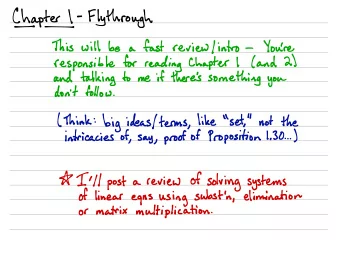 Chapter 1 - Flythrough
This will be a fast review/intro — You're
responsible for reading Chapter 1 (and 2)
and talking to me if there's something you
don't follow.
(Think: big ideas/terms, like "set," not the
intricacies of, say, proof of Proposition 1.30...)
☆ I'll post a review of solving systems
of linear eqns using subst'n, elimination
or matrix multiplication.